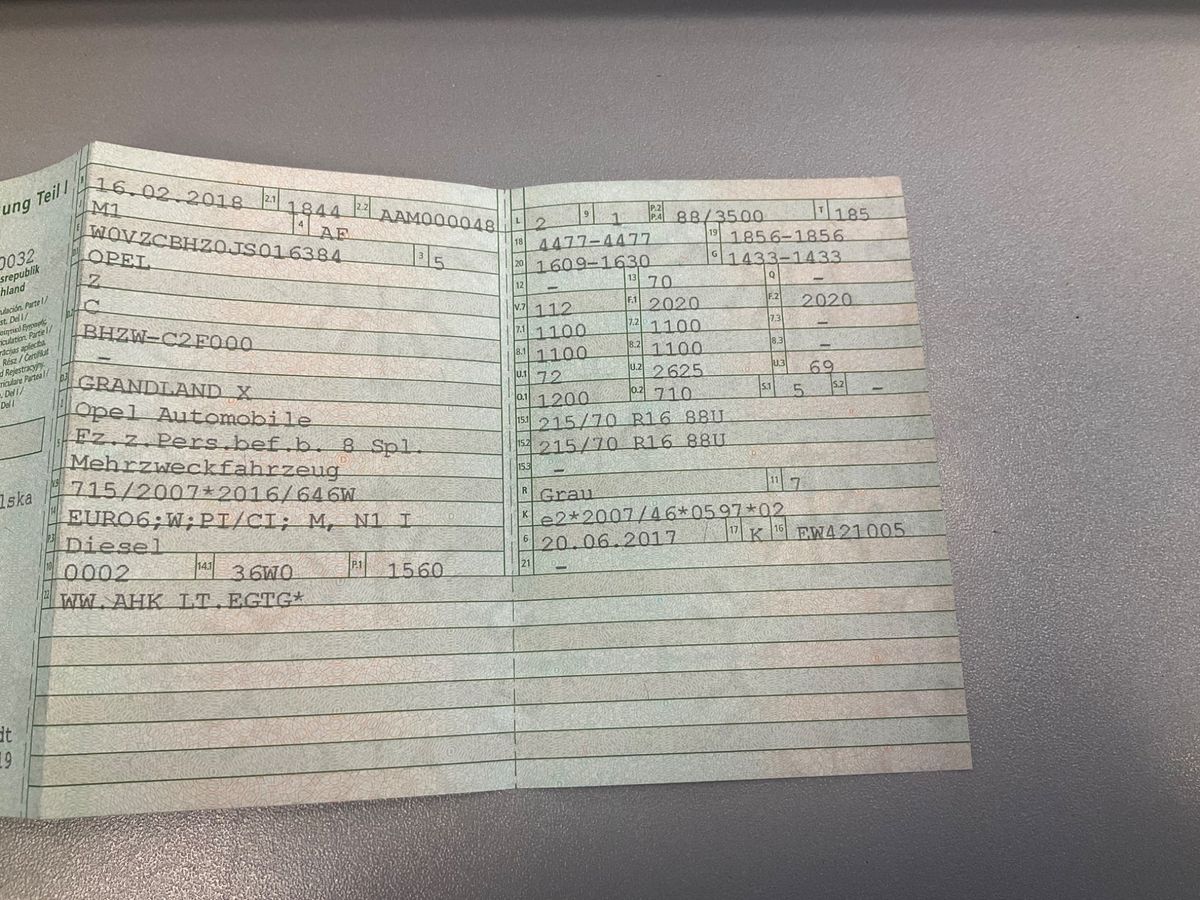 ung Teil I
0032
srepublik
hland
Parte I /
Del I /
Parte I /
Rész / Certifikat
Parte I /
Del I /
Del I
lska
dt
19
16.02.2018 2.1 1844 2.2 AAM000048
M1 4 AF
W0VZCBHZ0JS016384 3 5
OPEL
Z
C
BHZW-C2F000
–
D.3 GRANDLAND X
Opel Automobile
5 Fz.z.Pers.bef.b. 8 Spl.
Mehrzweckfahrzeug
V.9 715/2007*2016/646W
14 EURO6;W;PI/CI; M, N1 I
P.3 Diesel
10 0002 14.1 36W0 P.1 1560
22 WW.AHK LT.EGTG*
L 2 9 1 P.2 P.4 88/3500 T 185
18 4477-4477 19 1856-1856
20 1609-1630 G 1433-1433
12 – 13 70 Q –
V.7 112 F.1 2020 F.2 2020
7.1 1100 7.2 1100 7.3 –
8.1 1100 8.2 1100 8.3 –
U.1 72 U.2 2625 U.3 69
O.1 1200 O.2 710 S.1 5 S.2 –
15.1 215/70 R16 88U
15.2 215/70 R16 88U
15.3 –
R Grau 11 7
K e2*2007/46*0597*02
6 20.06.2017 17 K 16 EW421005
21 –